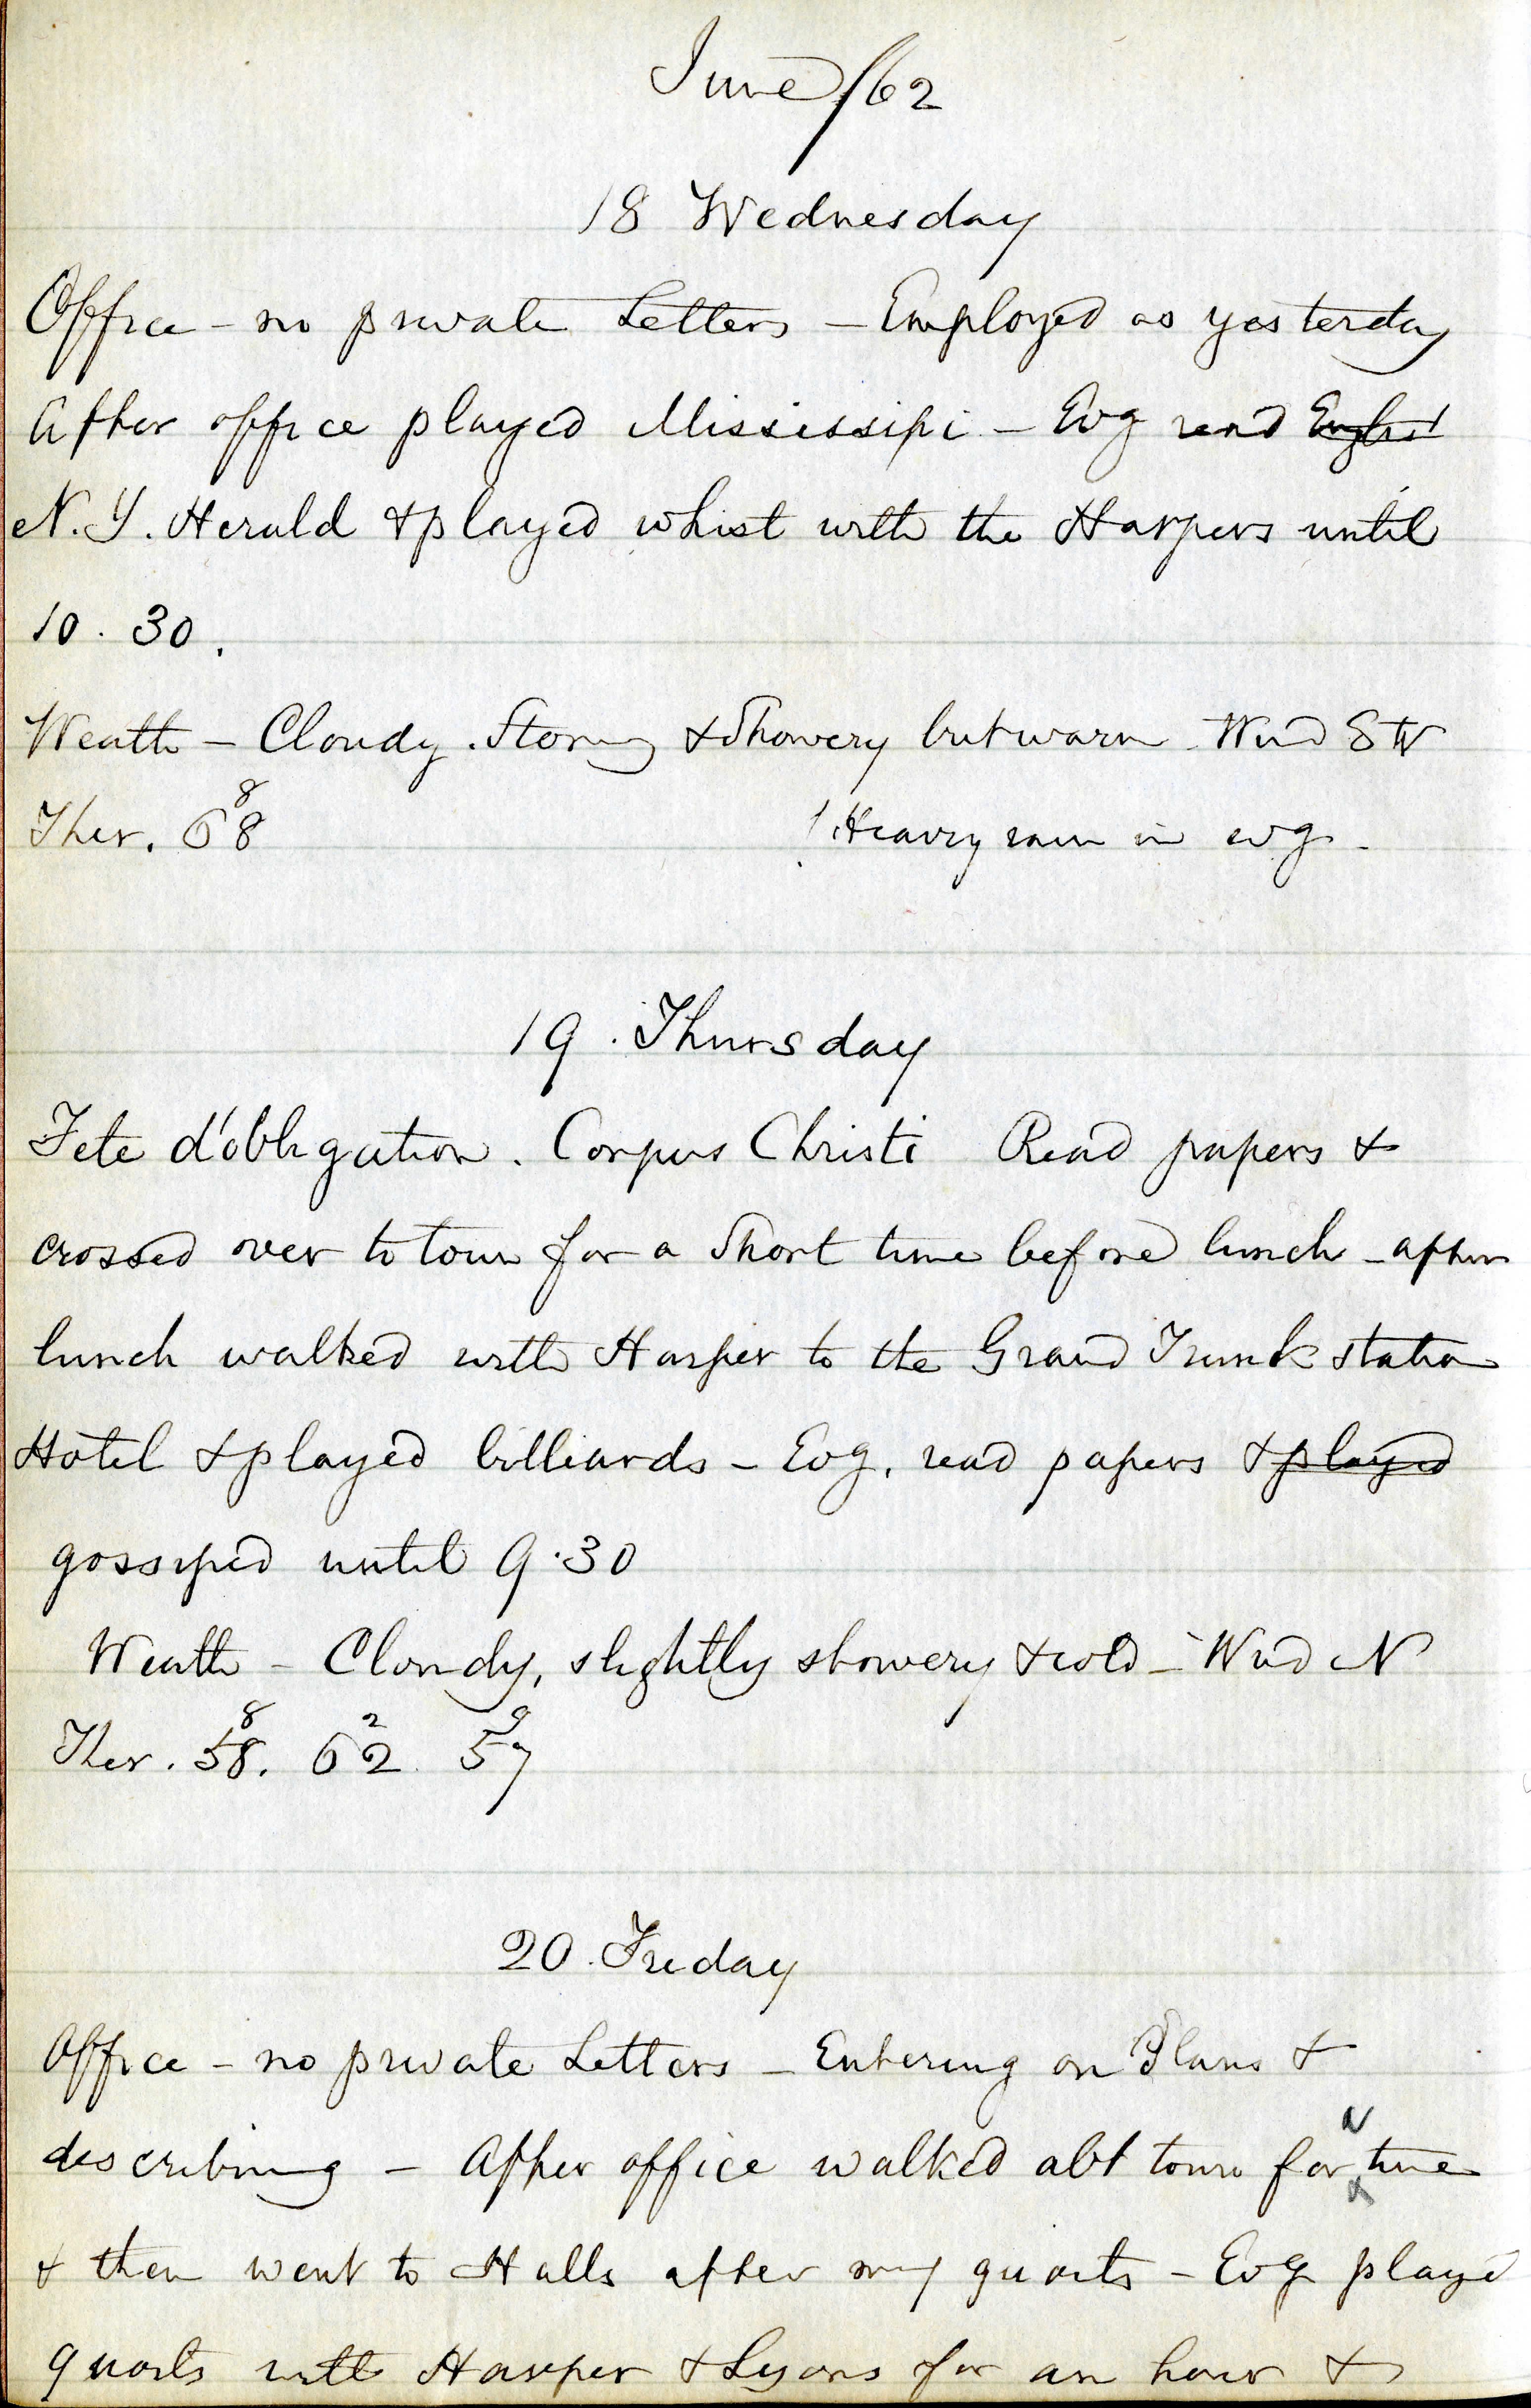 June /62
18 Wednesday
Office - no private Letters - Employed as yesterday
After office played Mississipi - Evg read
N. Y. Herald & played whist with the Harpers until
10. 30.
Weath - Cloudy. Stormy & Showery but warm - Wind SW
8
Ther. 68 / Heavy rain in evg -
19. Thursday
Fete d'obligation. Corpus Christi Read papers &
crossed over to town for a Short time before lunch - after
lunch walked with Harper to the Grand Trunk station
Hotel & played billiards - Evg. read papers & played
gossiped until 9.30
Weath - Cloudy, slightly showery & cold - Wind N
8 2 9
Ther. 58. 62. 57
20. Friday
Office - no private Letters - Entering on Plans &
a
describing - After office walked abt town for ^ time
& then went to Halls after my quoits - Evg played
quoits with Harper & Lyons for an hour &